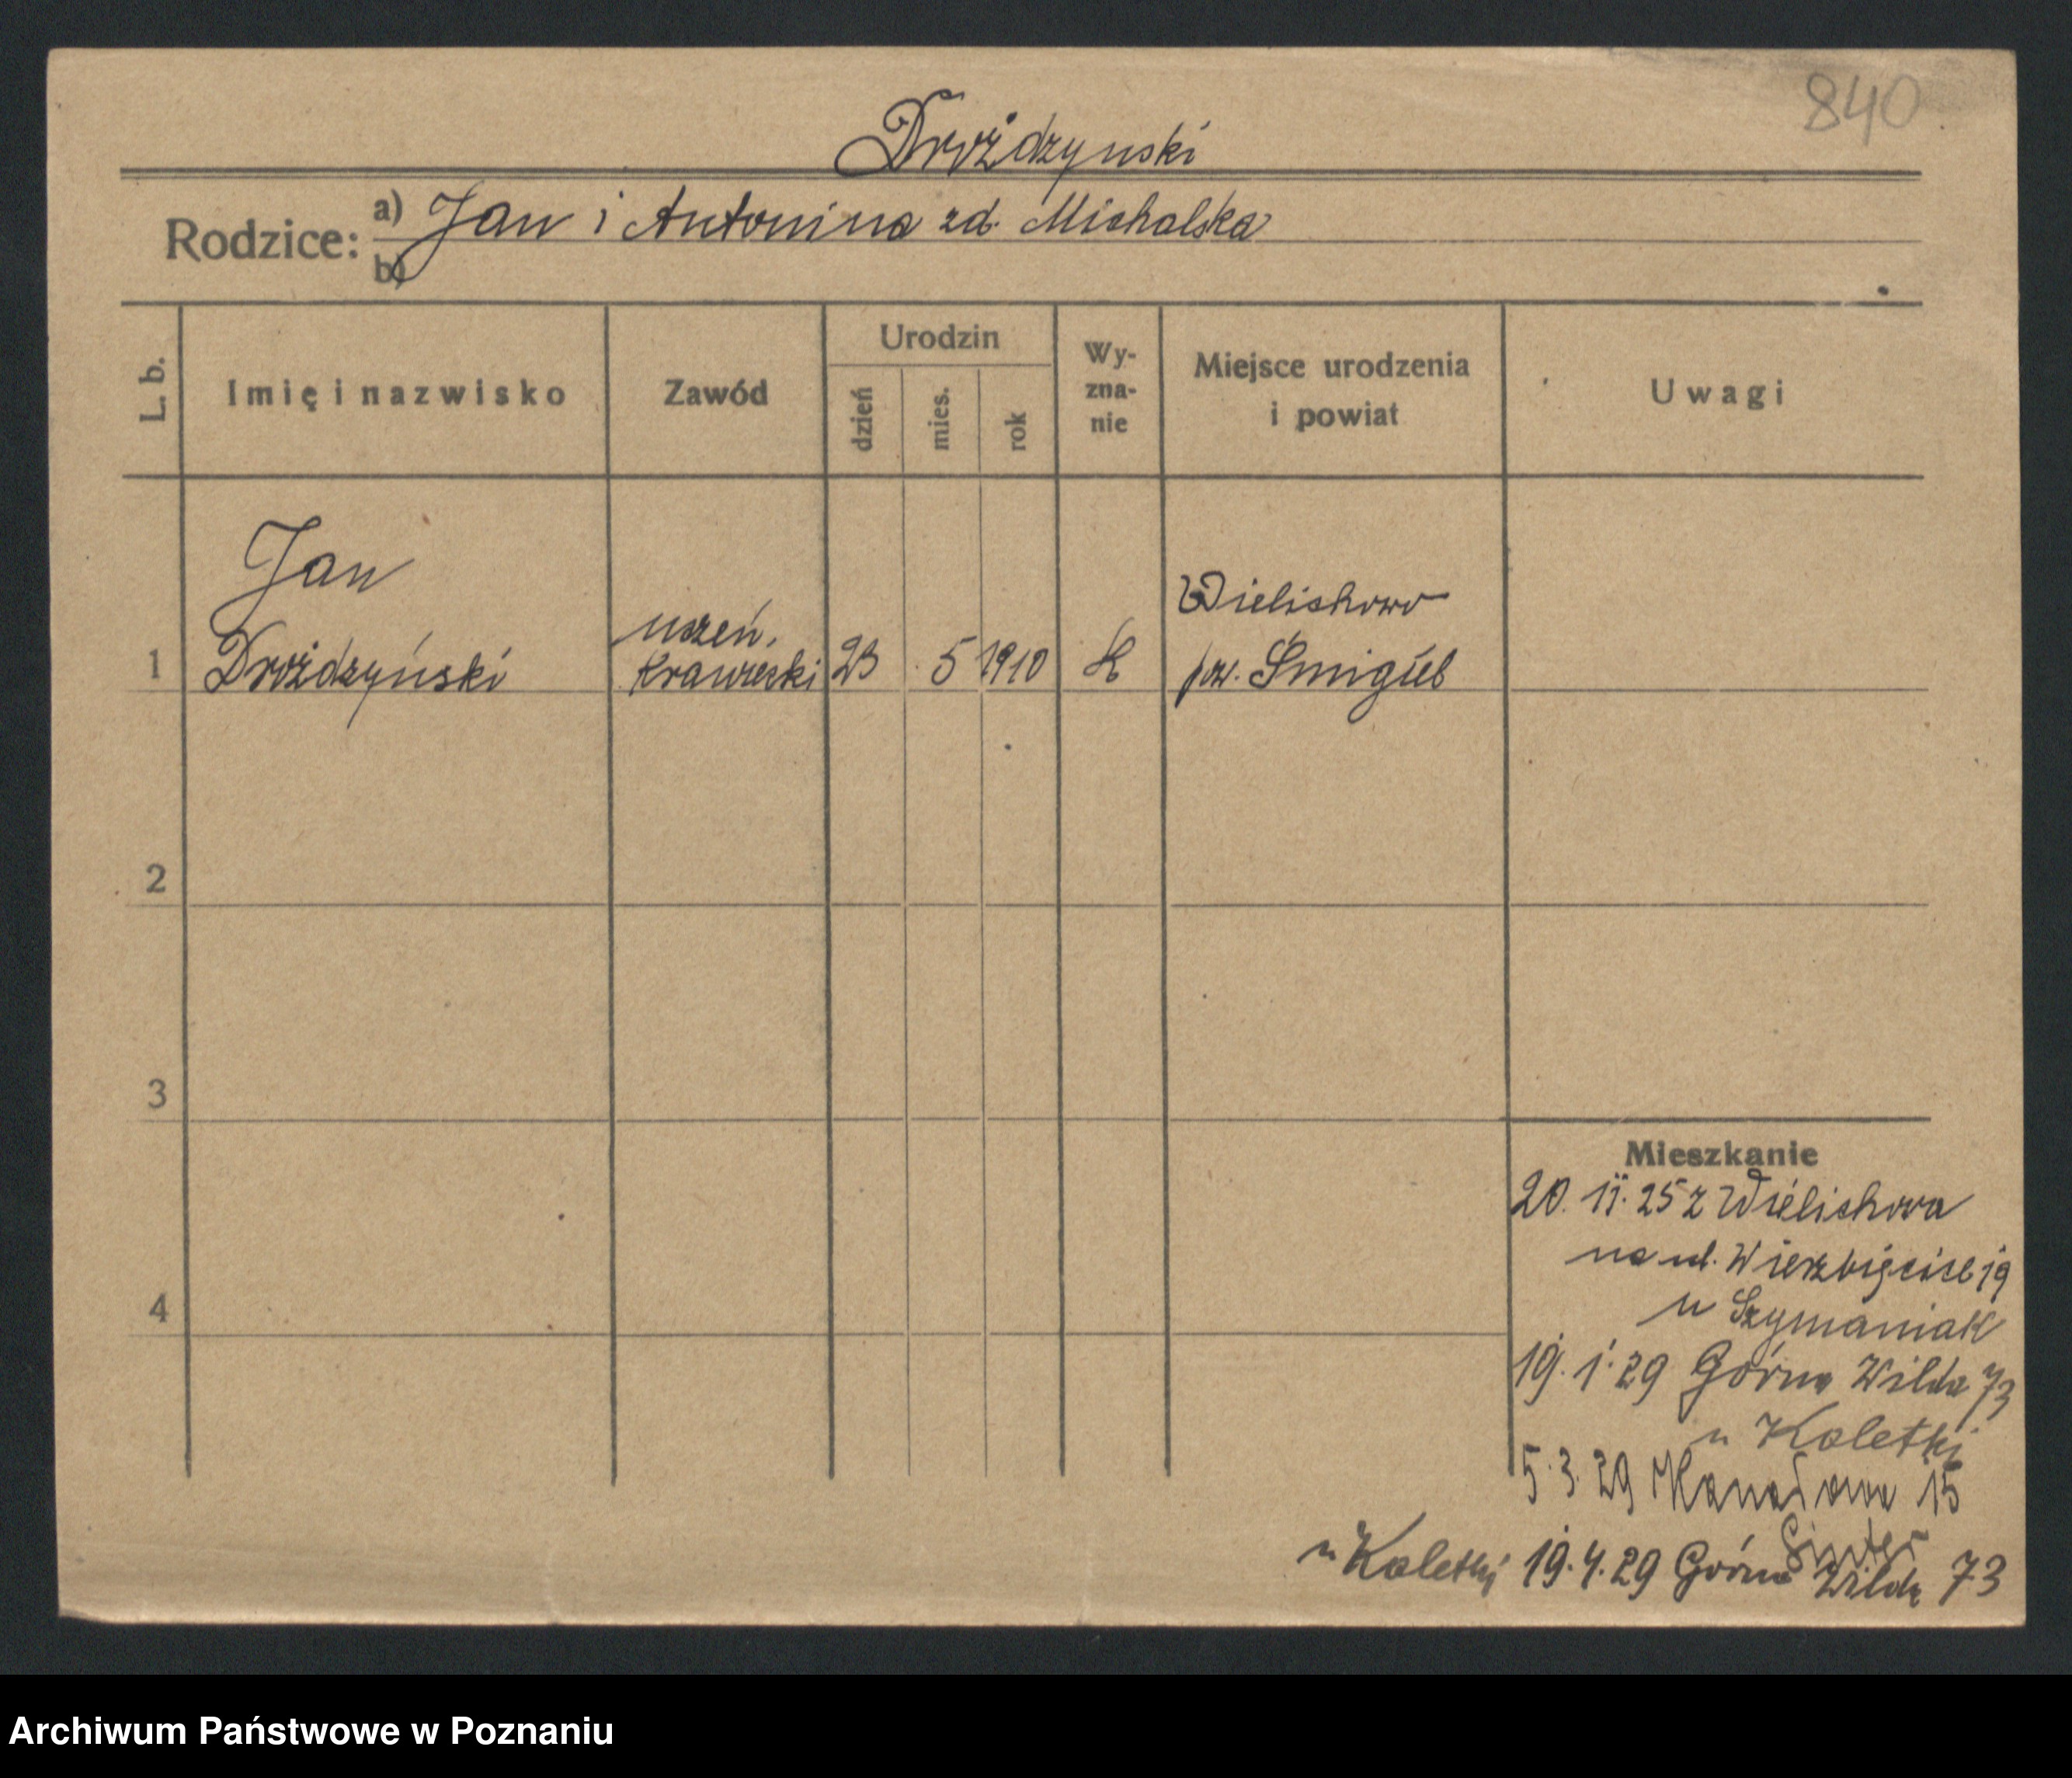 840
Drożdzynski
Rodzice:
a) Jan i Antonina zd. Michalska
b)
L. b.
Imię i nazwisko
Zawód
Urodzin
dzień
mies.
rok
Wy-
zna-
nie
Miejsce urodzenia
i powiat
Uwagi
1
Jan
Drożdzyński
uczeń.
krawiecki
23
5
1910
K
Wielichowo
pow. Śmigiel
2
3
4
Mieszkanie
20. 11. 25 z Wielichowa
na ul. Wierzbięcice 19
u Szymaniak
19. 1. 29 Górna Wilda 73
u Koletki
5. 3. 29 15
u Koletki 19. 4. 29 Górna Wilda 73
Archiwum Państwowe w Poznaniu